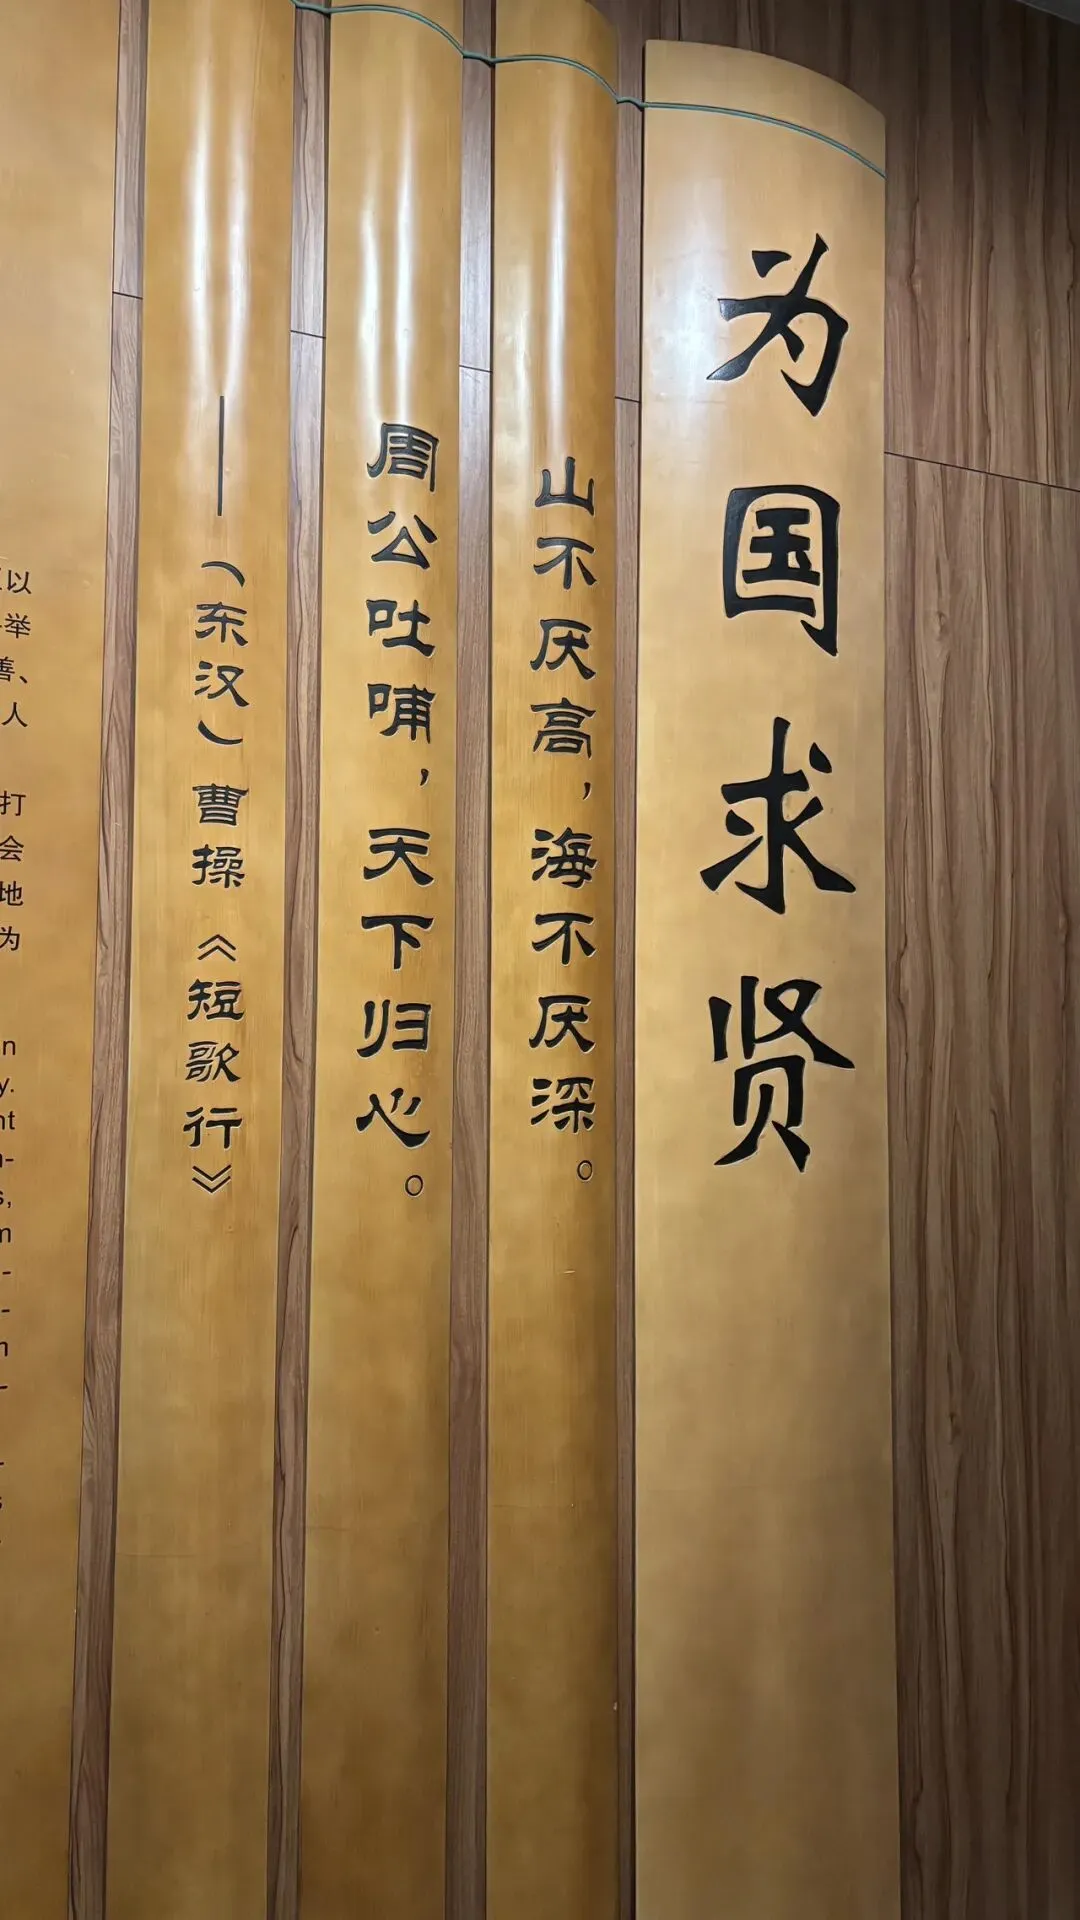 为国求贤
山不厌高，海不厌深。
周公吐哺，天下归心。
——（东汉）曹操《短歌行》
以
举
善、
人
打
会
地
为
n
y.
nt
n-
s,
m
-
-
n
-
-
s